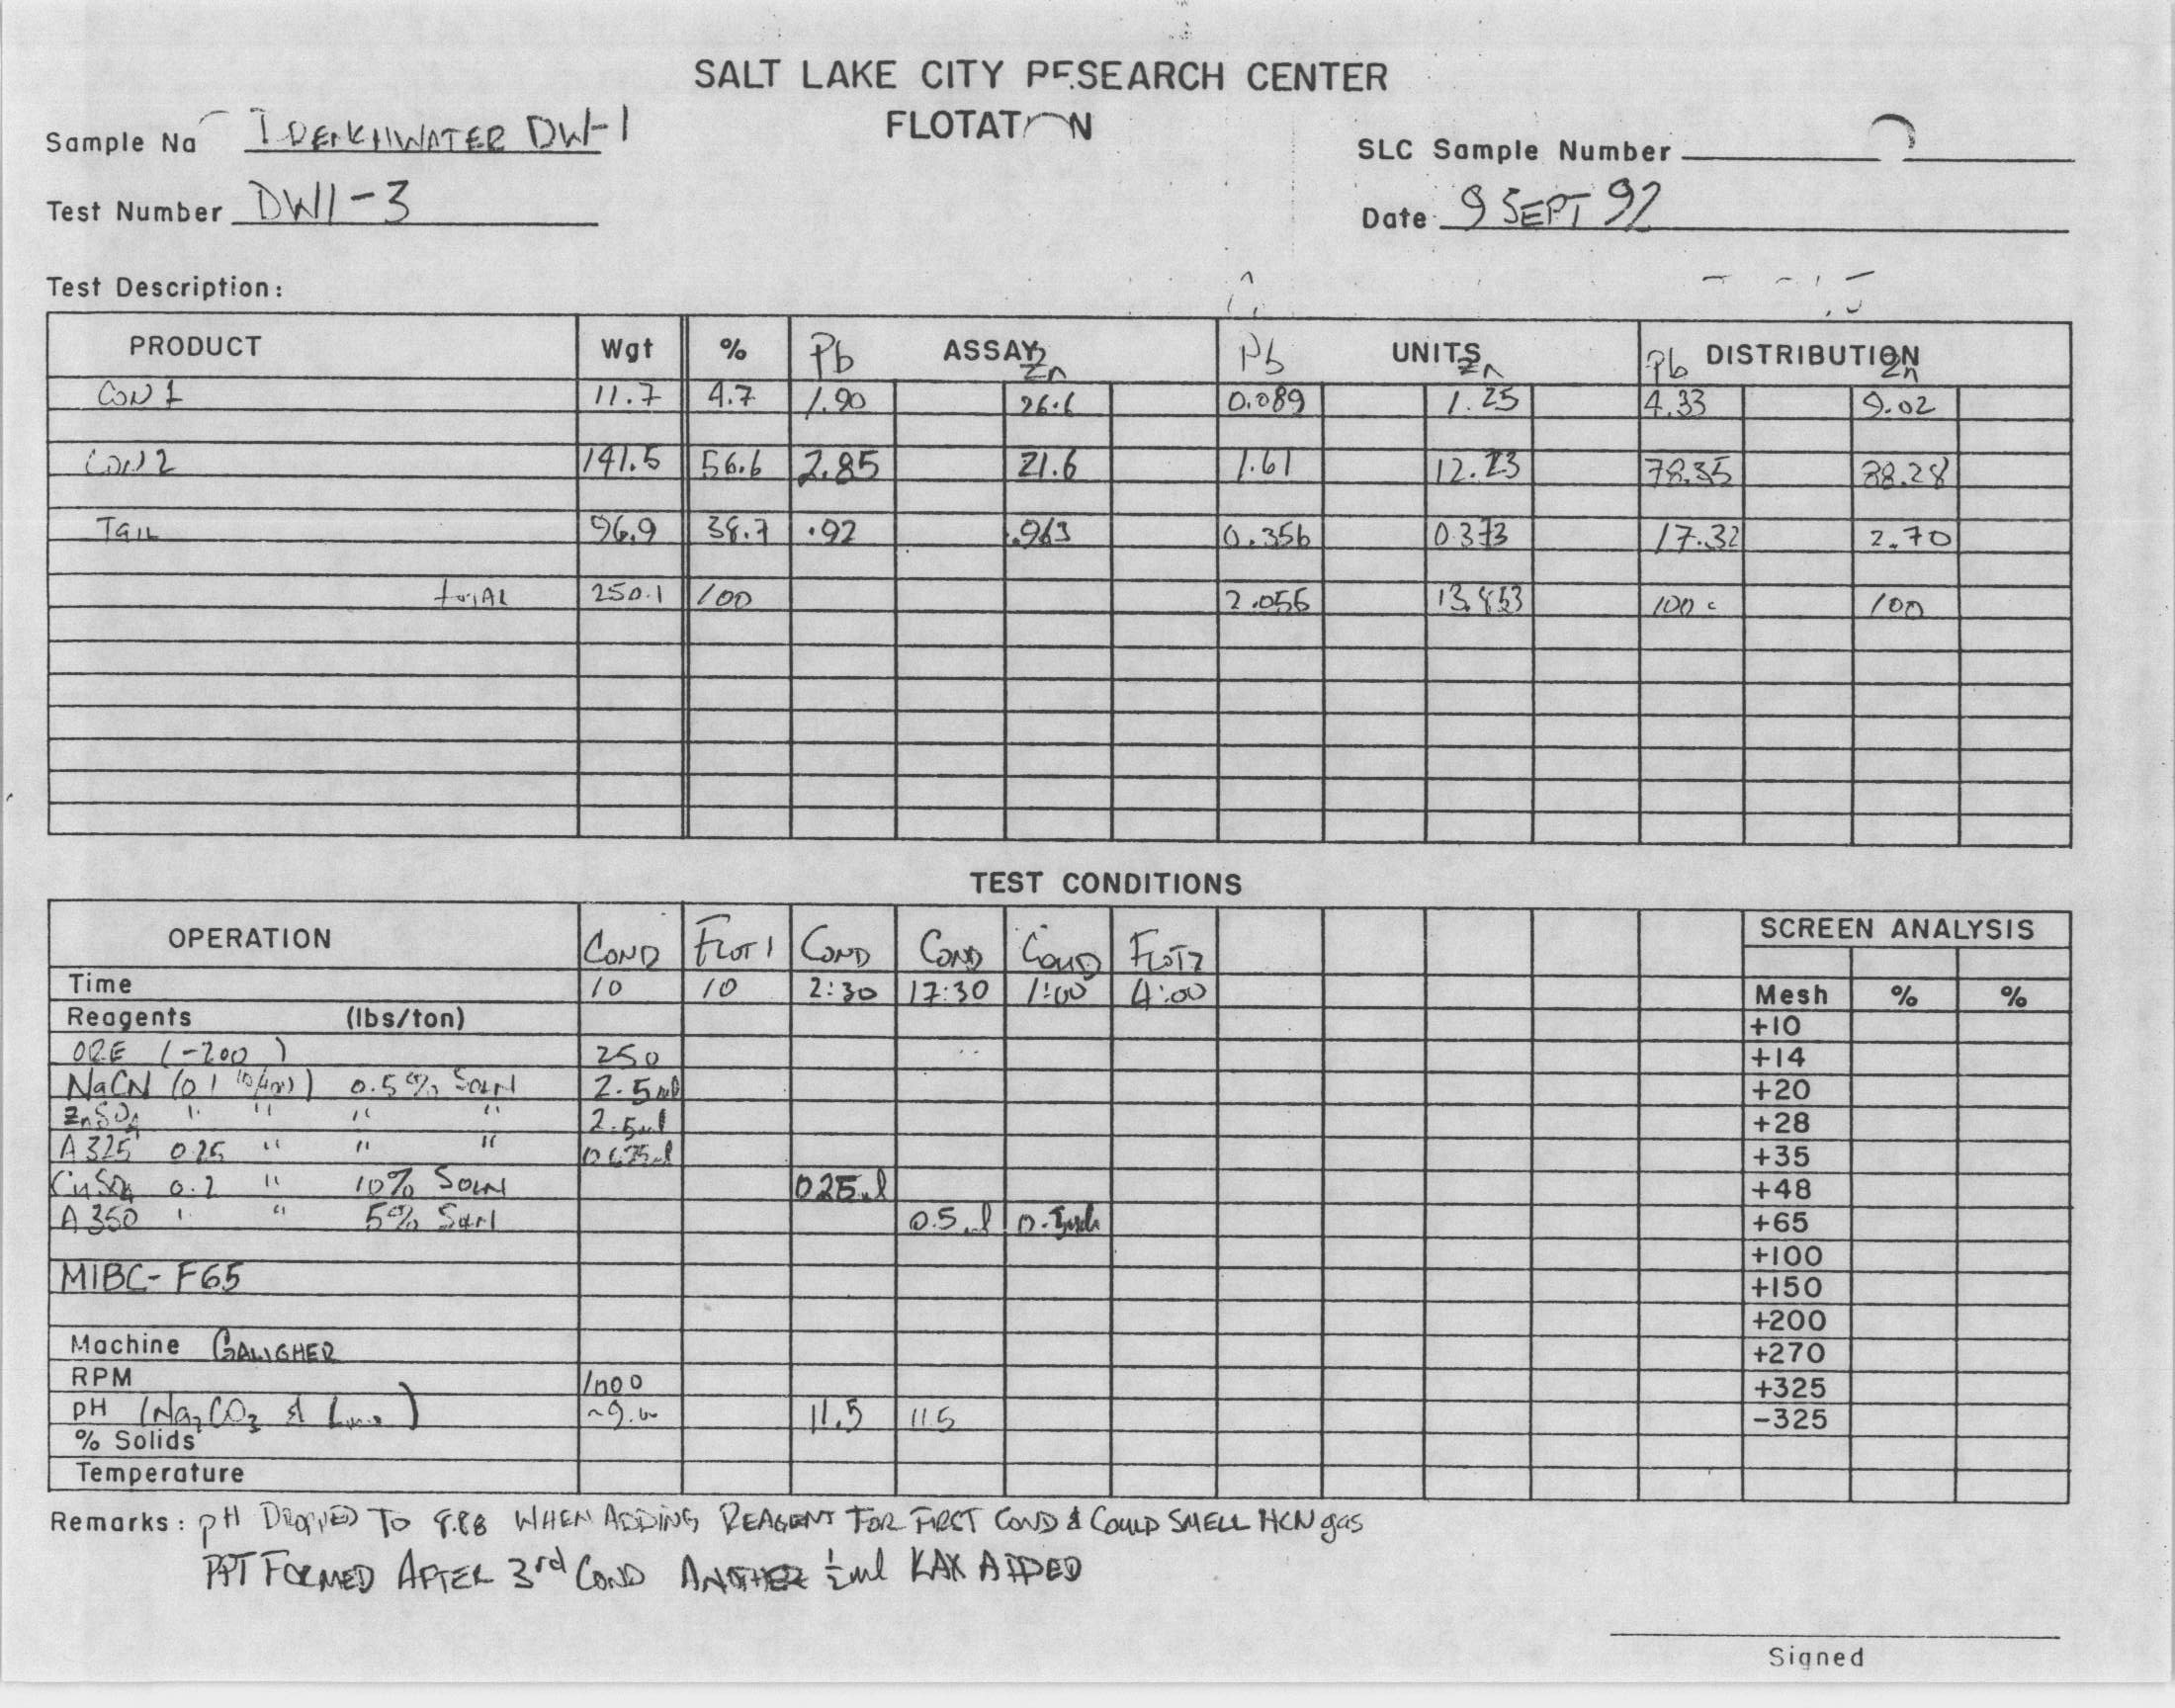 SALT LAKE CITY RESEARCH CENTER
FLOTAT N
Sample No DW-1
SLC Sample Number
Test Number DW1-3
Date 9 SEPT 92
Test Description:
PRODUCT Wgt % Pb ASSAY Zn Pb UNITS Zn Pb DISTRIBUTION Zn
CON 1 11.7 4.7 1.90 26.6 0.089 1.25 4.33 9.02
CON 2 141.5 56.6 2.85 21.6 1.61 12.23 78.35 88.28
TAIL 96.9 38.7 .92 .963 0.356 0.373 17.32 2.70
TOTAL 250.1 100 2.055 13.853 100 100
TEST CONDITIONS
OPERATION COND FLOT 1 COND COND COND FLOT 2 SCREEN ANALYSIS
Time 10 10 2:30 17:30 1:00 4:00 Mesh % %
Reagents (lbs/ton) +10
ORE (-200) 250 +14
NaCN (0.1 lb/ton) 0.5% SOLN 2.5 ml +20
ZnSO4 " " " " 2.5 ml +28
A 325 0.25 " " " +35
CuSO4 0.2 " 10% SOLN 0.25 ml +48
A 350 " " 5% SOLN 0.5 ml +65
+100
MIBC- F65 +150
+200
Machine GALIGHER +270
RPM 1000 +325
pH (Na2CO3 & Lime) 11.5 11.5 -325
% Solids
Temperature
Remarks: pH DROPPED TO 8.88 WHEN ADDING REAGENT FOR FIRST COND & COULD SMELL HCN gas
PPT FORMED AFTER 3rd COND ANOTHER ½ ml KAX ADDED
Signed